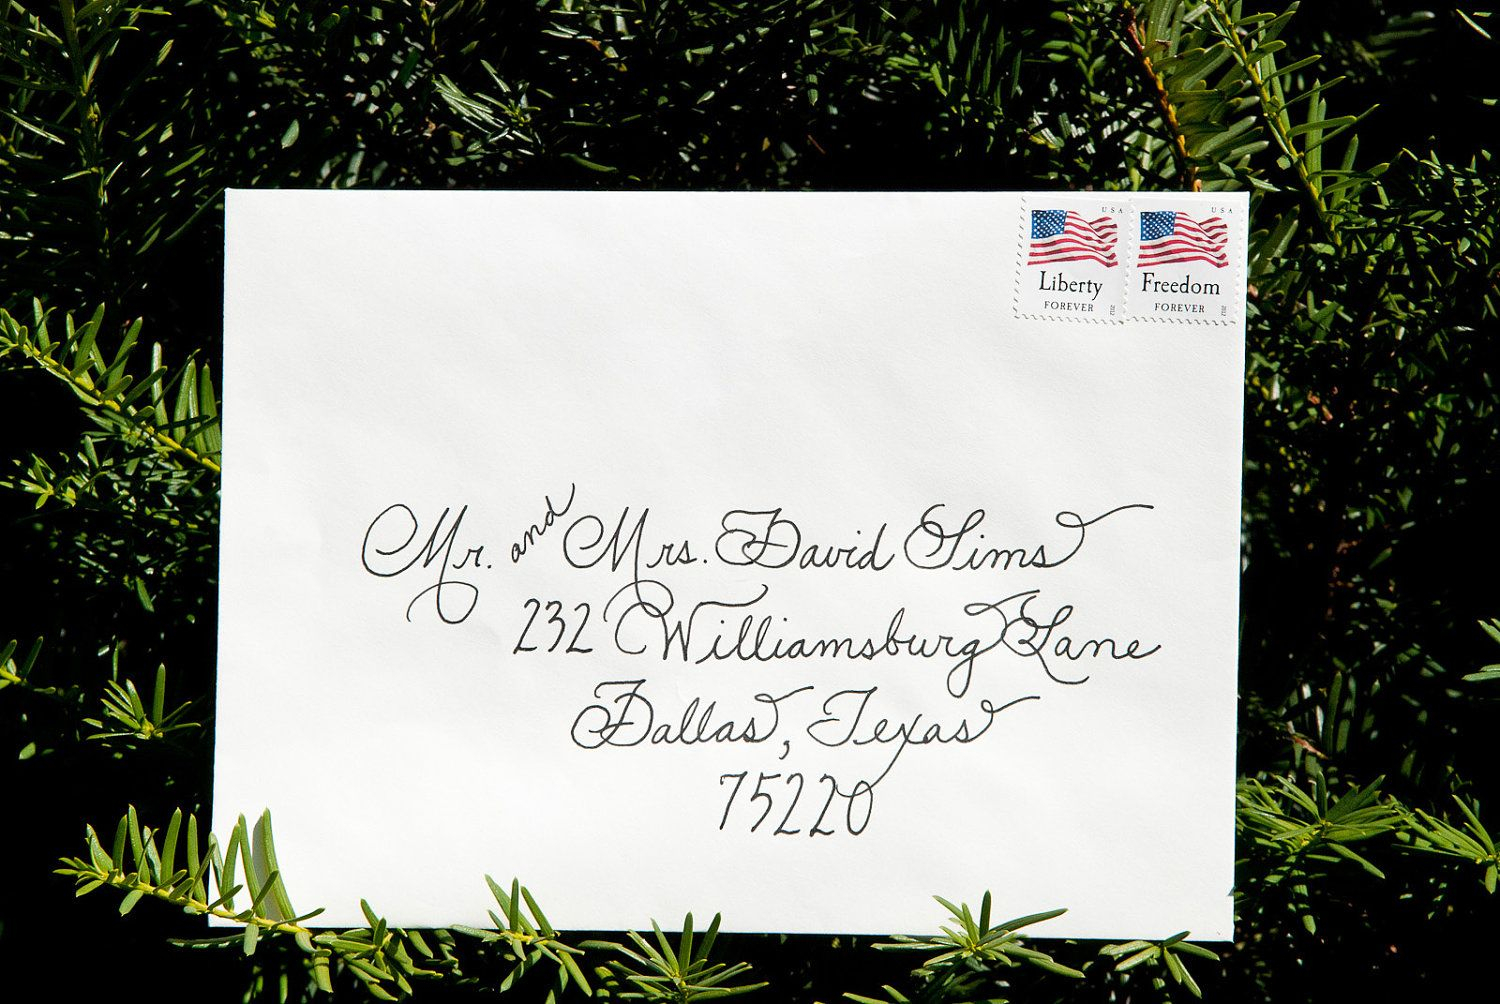 USA
Liberty
FOREVER
2012
USA
Freedom
FOREVER
2012
Mr. and Mrs. David Sims
232 Williamsburg Lane
Dallas, Texas
75220